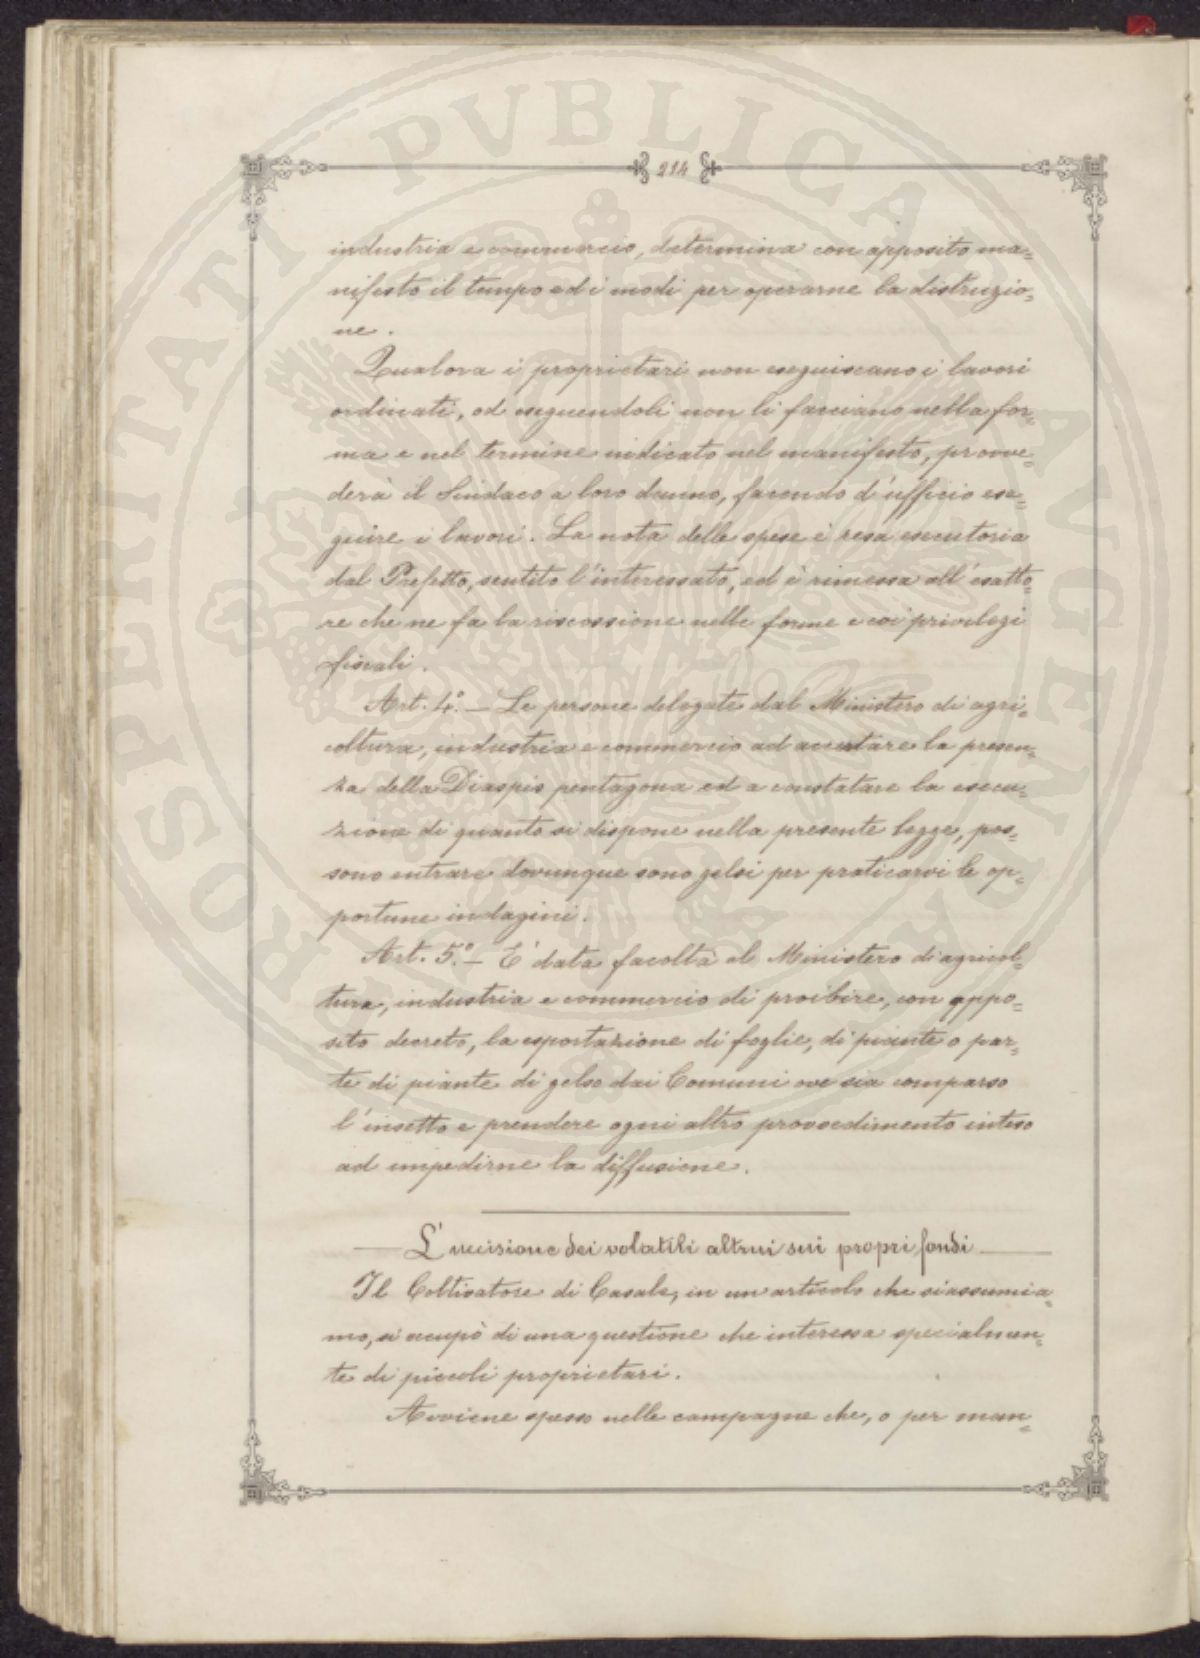 PROSPERITATI PVBLICAE AVGENDAE
214
industria e commercio, determina con apposito ma=
nifesto il tempo ed i modi per operarne la distruzio=
ne.
Qualora i proprietari non eseguiscano i lavori
ordinati, od eseguendoli non li facciano nella for=
ma e nel termine indicato nel manifesto, provve=
derà il Sindaco a loro danno, facendo d'ufficio ese=
guire i lavori. La nota delle spese è resa esecutoria
dal Prefetto, sentito l'interessato, ed è rimessa all'esatto=
re che ne fa la riscossione nelle forme e coi privilegi
fiscali.
Art. 4.° — Le persone delegate dal Ministero di agri=
coltura, industria e commercio ad accertare la presen=
za della Diaspis pentagona ed a constatare la esecu=
zione di quanto si dispone nella presente legge, pos=
sono entrare dovunque sono gelsi per praticarvi le op=
portune indagini.
Art. 5.° — E' data facoltà al Ministero di agricol=
tura, industria e commercio di proibire, con appo=
sito decreto, la esportazione di foglie, di piante o par=
te di piante di gelso dai Comuni ove sia comparso
l'insetto e prendere ogni altro provvedimento inteso
ad impedirne la diffusione.
L'uccisione dei volatili altrui sui propri fondi
Il Coltivatore di Casale, in un articolo che riassumia=
mo, si occupò di una questione che interessa specialmen=
te di piccoli proprietari.
Avviene spesso nelle campagne che, o per man=